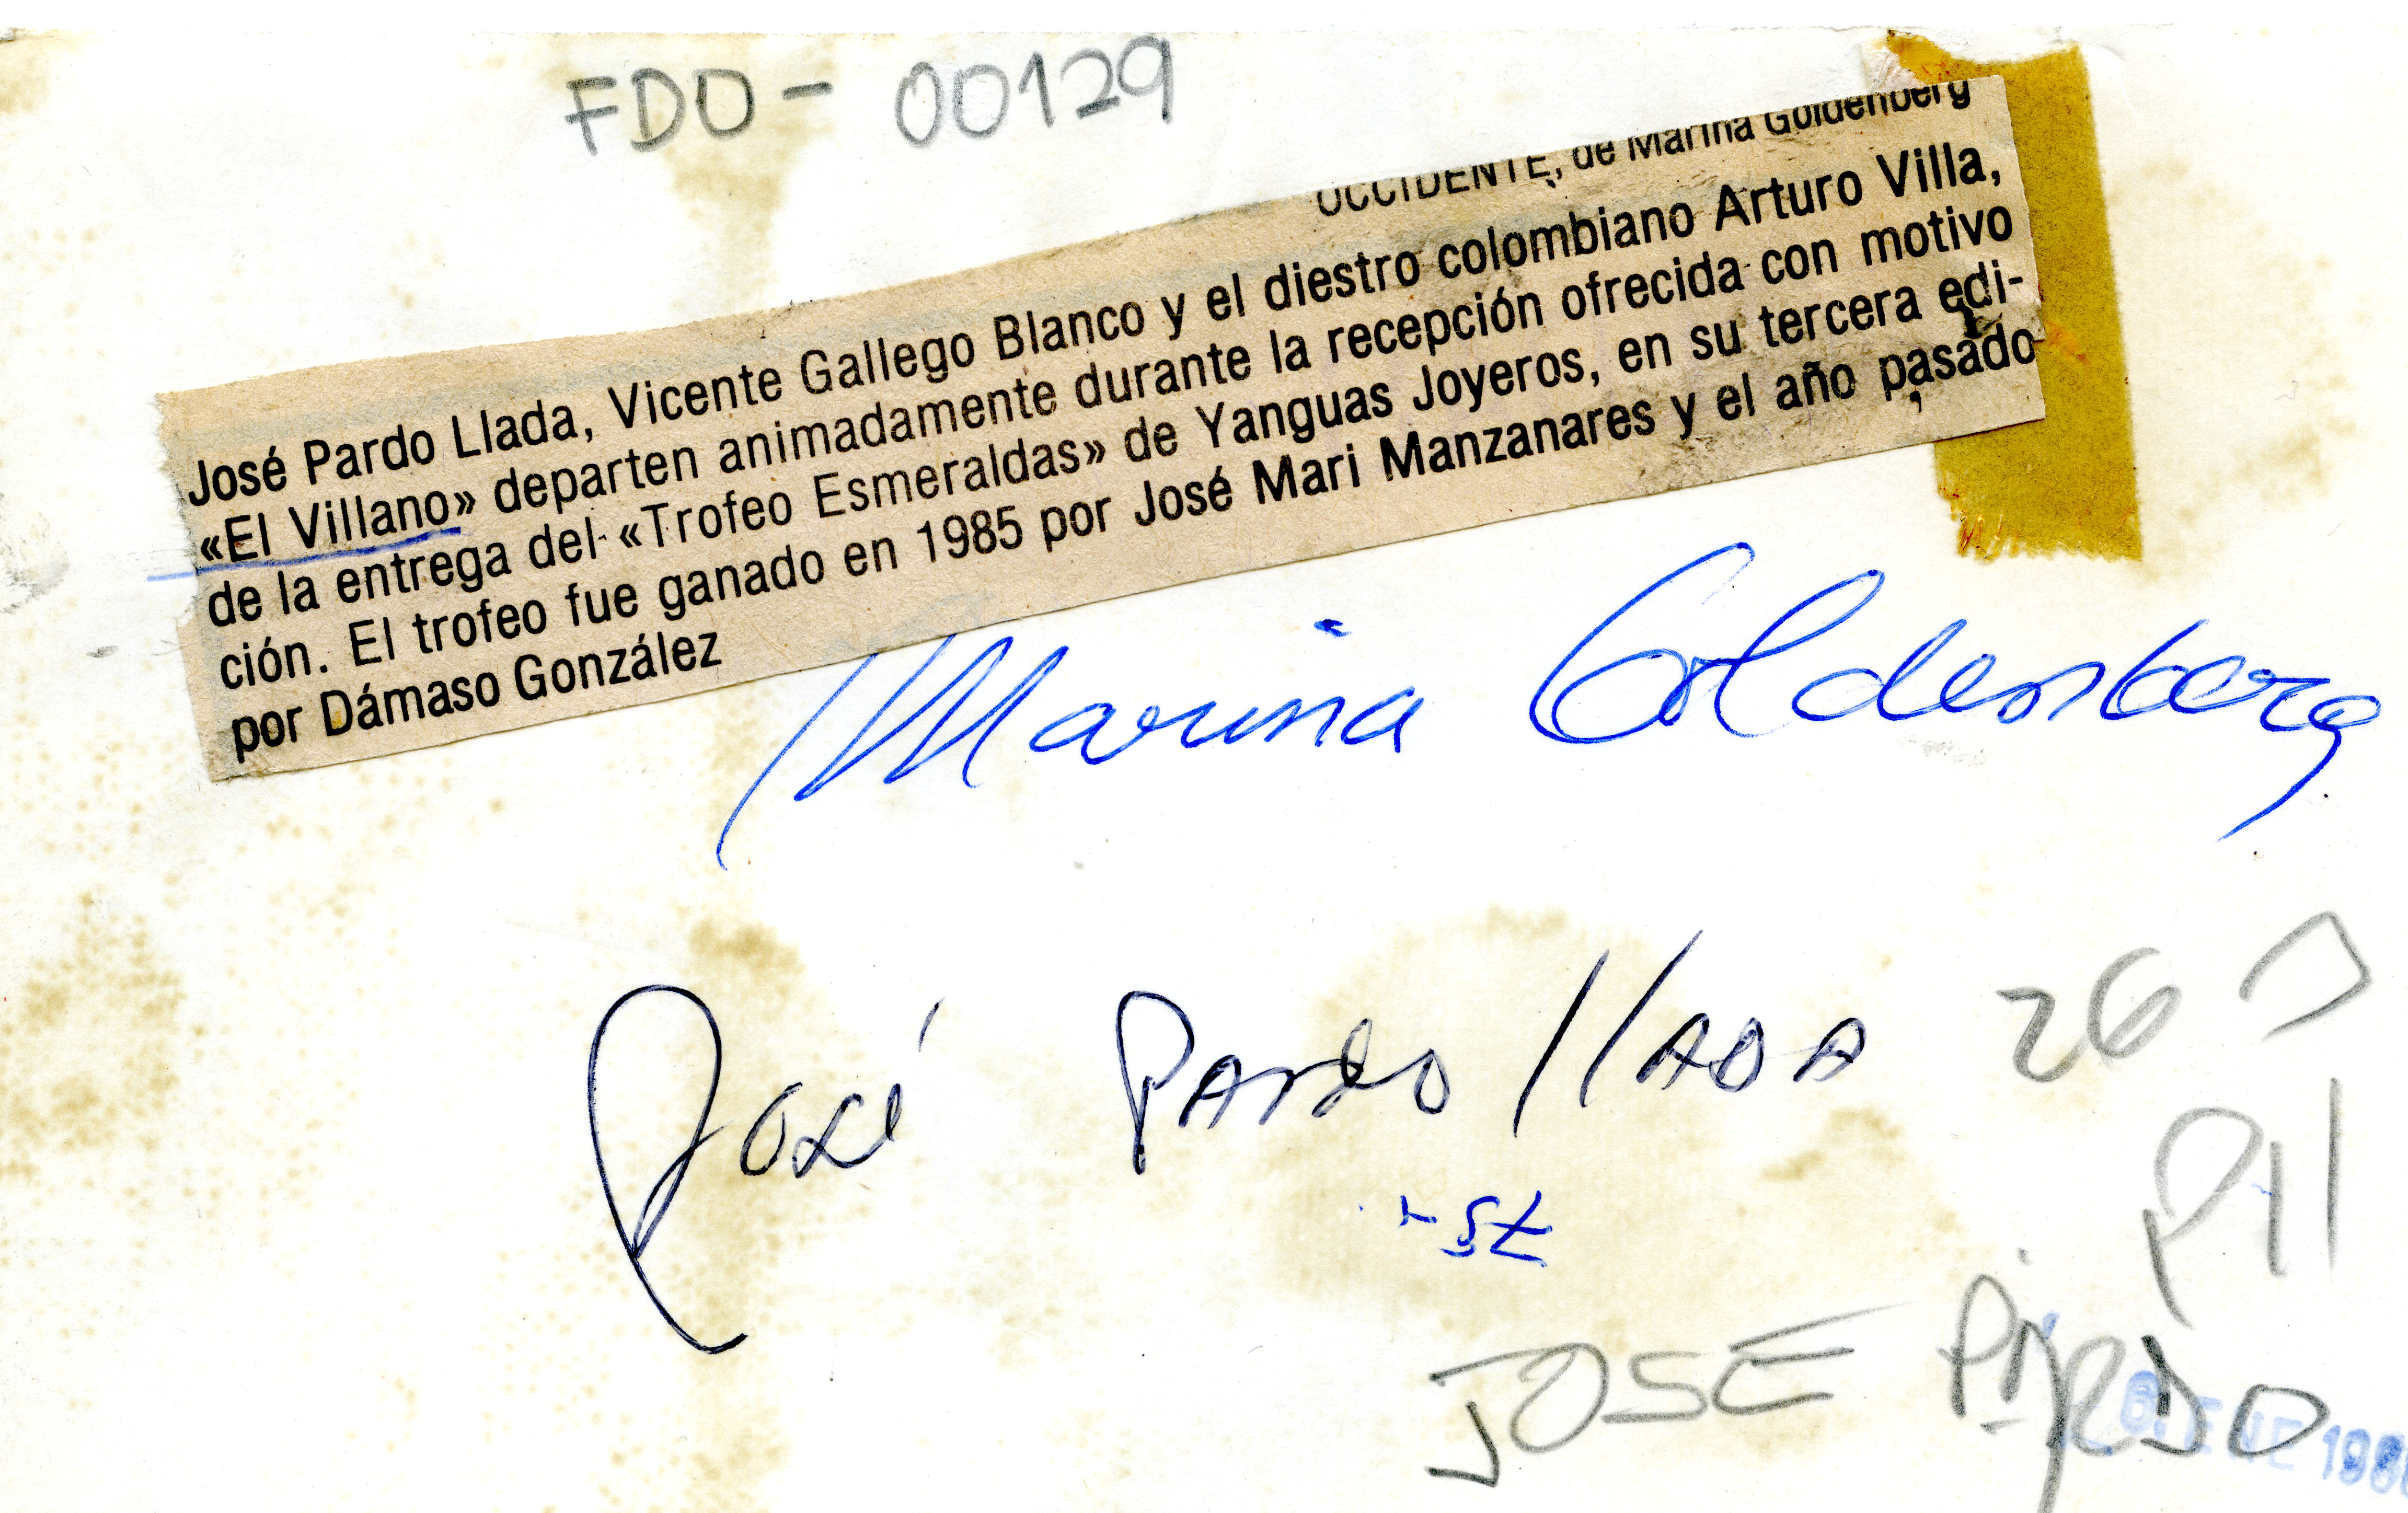 FDO - 00129
OCCIDENTE, de Marina Goldenberg
José Pardo Llada, Vicente Gallego Blanco y el diestro colombiano Arturo Villa,
«El Villano» departen animadamente durante la recepción ofrecida con motivo
de la entrega del «Trofeo Esmeraldas» de Yanguas Joyeros, en su tercera edi-
ción. El trofeo fue ganado en 1985 por José Mari Manzanares y el año pasado
por Dámaso González
Marina Goldenberg
José Pardo llada
26
P11
JOSE PARDO
6. ENE 198